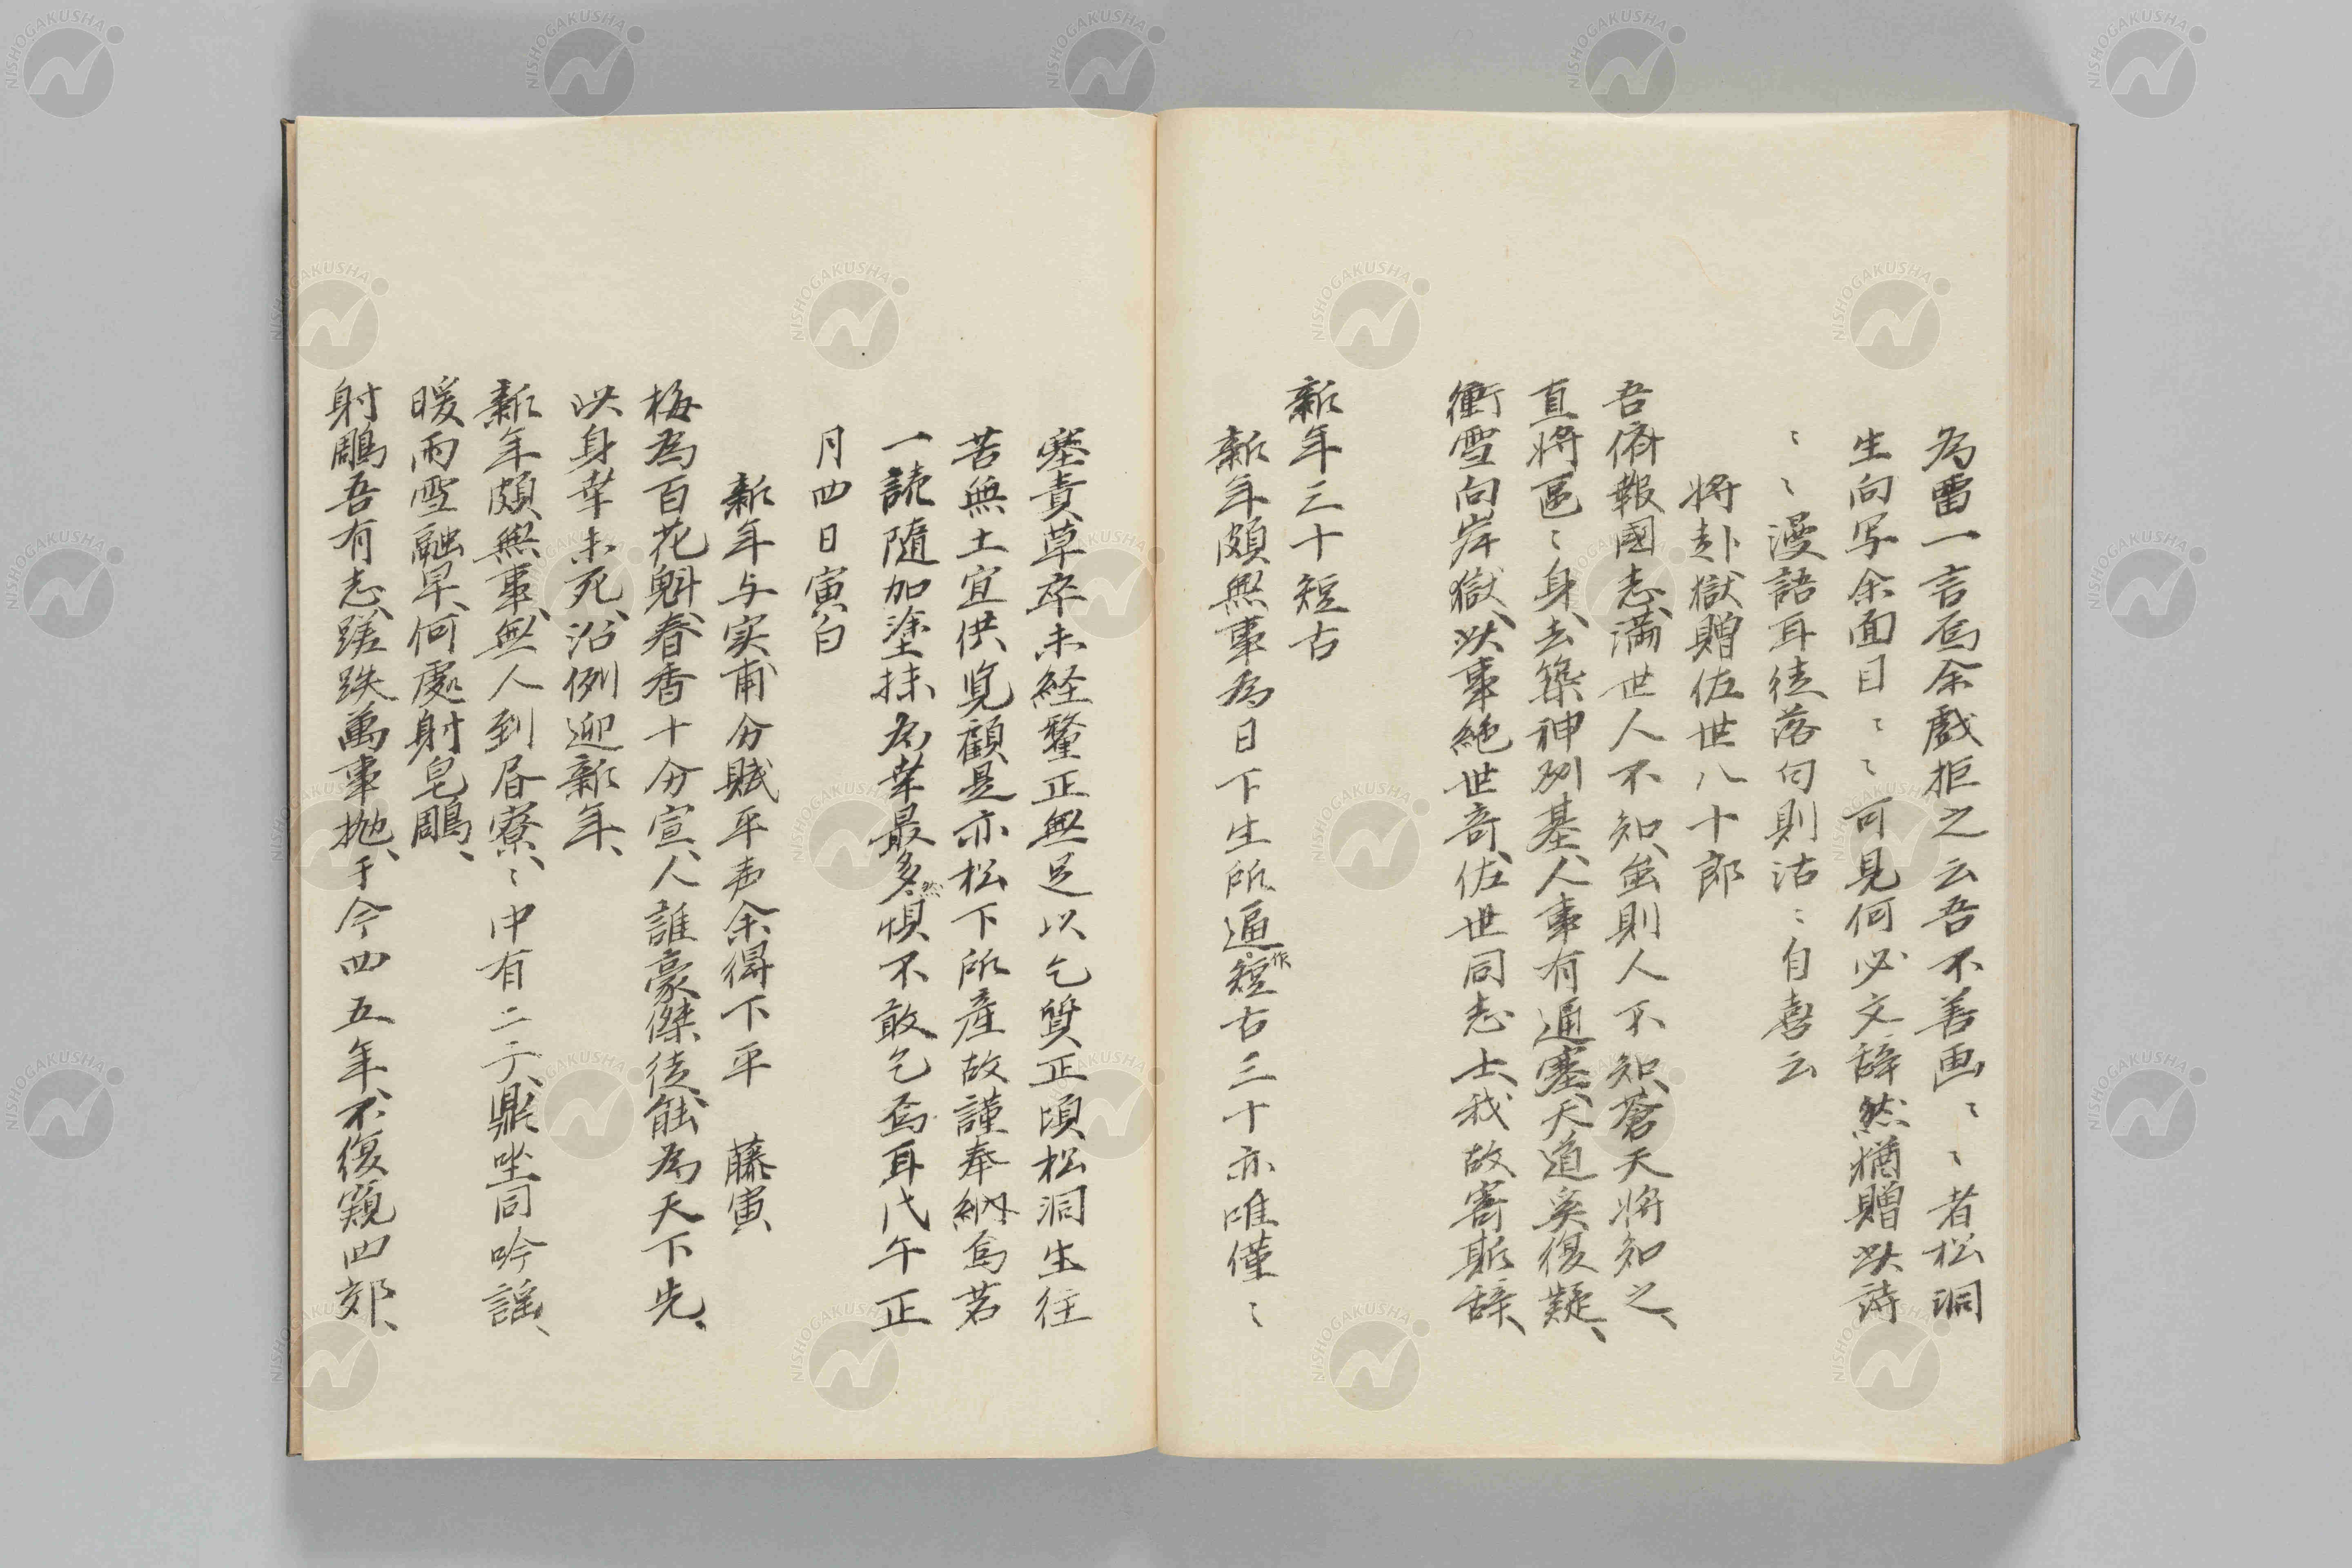 為雷一言焉余戯拒之云吾不善画〻〻者松洞
生向写余面目〻〻可見何必文辞然猶贈以詩
〻〻漫語耳徒落句則沾〻自喜云
将赴獄贈佐世八十郎
吾儕報國志、満世人不知、無則人不知、蒼天将知之、
直将區〻身、去築神州基、人事有通塞、天道奚復疑、
衝雪向岸獄、此事絶世奇、佐世同志士、我故寄斯辞、
新年三十短古
新年頗無事為日下生所逼作短古三十亦唯僅〻
塞責草卒未経鏊正無足以乞質正頃松洞生往
苦無土宜供覧顧是亦松下所産故謹奉納焉若
一読随加塗抹為幸最多然惧不敢乞焉耳戊午正
月四日寅白
新年与実甫分賦平声余得下平　藤寅
梅為百花魁、春香十分宣、人誰豪傑徒、能為天下先、
此身幸未死、沿例迎新年、
新年頗無事、無人到昏寮、〻中有二三子、鼎坐同吟謡、
暖雨雪融早、何處射皂鵰、
射鵰吾有志、蹉跌萬事抛、于今四五年、不復窺四郊、
NISHOGAKUSHA